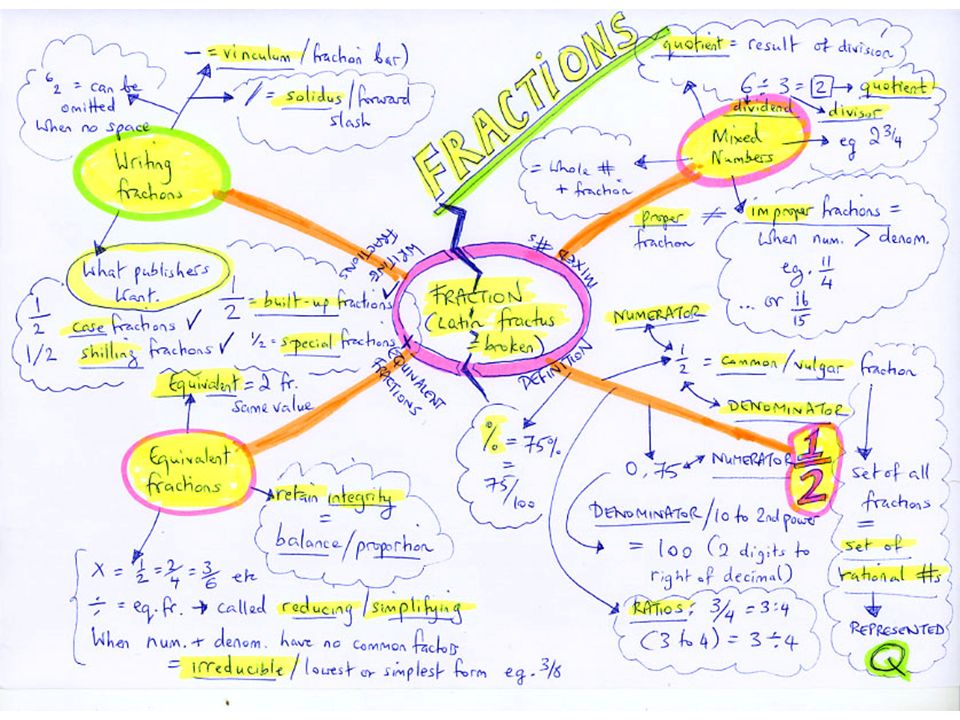 FRACTIONS
FRACTION
(Latin fractus
= broken)
WRITING
FRACTIONS
MIXED #s
EQUIVALENT
FRACTIONS
DEFINITION
Writing
fractions
— = vinculum / fraction bar)
/ = solidus / forward
slash
6/2 = can be
omitted
when no space
What publishers
want.
1/2
case fractions ✓
1/2 shilling fractions ✓
1/2 = built-up fractions ✓
½ = special fractions x
Mixed
Numbers
quotient = result of division
6 ÷ 3 = 2 → quotient
dividend
divisor
eg 2 3/4
= whole #
+ fraction
proper
fraction
≠
improper fractions =
When num. > denom.
eg. 11/4
... or 16/15
Equivalent
fractions
Equivalent = 2 fr.
same value
retain integrity
=
balance / proportion
X = 1/2 = 2/4 = 3/6 etc
÷ = eq. fr. → called reducing / simplifying
When num. + denom. have no common factors
= irreducible / lowest or simplest form eg. 3/8
1/2
NUMERATOR
1/2 = common / vulgar fraction
DENOMINATOR
% = 75%
=
75/100
0,75
NUMERATOR
DENOMINATOR / 10 to 2nd power
= 100 (2 digits to
right of decimal)
RATIOS: 3/4 = 3:4
(3 to 4) = 3 ÷ 4
set of all
fractions
=
set of
rational #s
REPRESENTED
Q